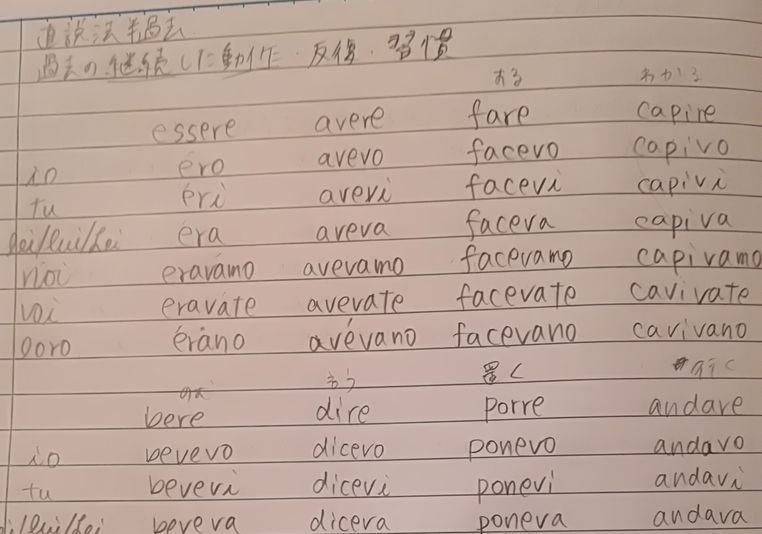 直説法半過去
過去の継続した動作・反復・習慣
する わかる
essere avere fare capire
io éro avevo facevo capivo
tu éri avevi facevi capivi
lei/lui/Lei éra aveva faceva capiva
noi eravámo avevamo facevamo capivamo
voi eraváte avevate facevate cavivate
loro érano avévano facevano cavivano
言う 置く 行く
bere dire porre andare
io bevevo dicevo ponevo andavo
tu bevevi dicevi ponevi andavi
lei/lui/Lei beveva diceva poneva andava